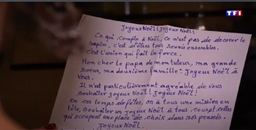 TF1
Joyeux Noël! Joyeux Noël!
Ce qui compte à Noël, ce n'est pas de décorer le
sapin, c'est d'être tous réunis ensemble.
C'est l'union qui fait la force.
Mon cher le papa de mon tuteur, ma grande
soeur, ma deuxième famille: Joyeux Noël à
vous.
Il m'est particulièrement agréable de vous
souhaiter Joyeux Noël! Joyeux Noël.
En ces temps de fêtes, on a tous une mission en
tête, souhaiter un joyeux Noël à tout
qui occupent une place de choix dans nos pensées :
Joyeux Noël.